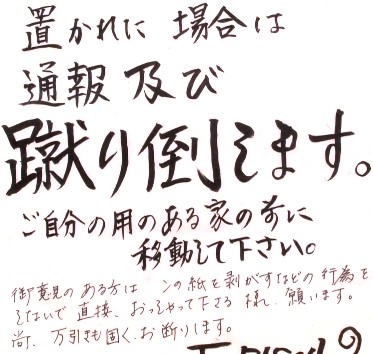 置かれに場合は
通報及び
蹴り倒します。
ご自分の用のある家の前に
移動して下さい。
御意見のある方は この紙を剥がすなどの行為を
しないで直接、おっしゃって下さる様、願います。
尚、万引きも固くお断りします。